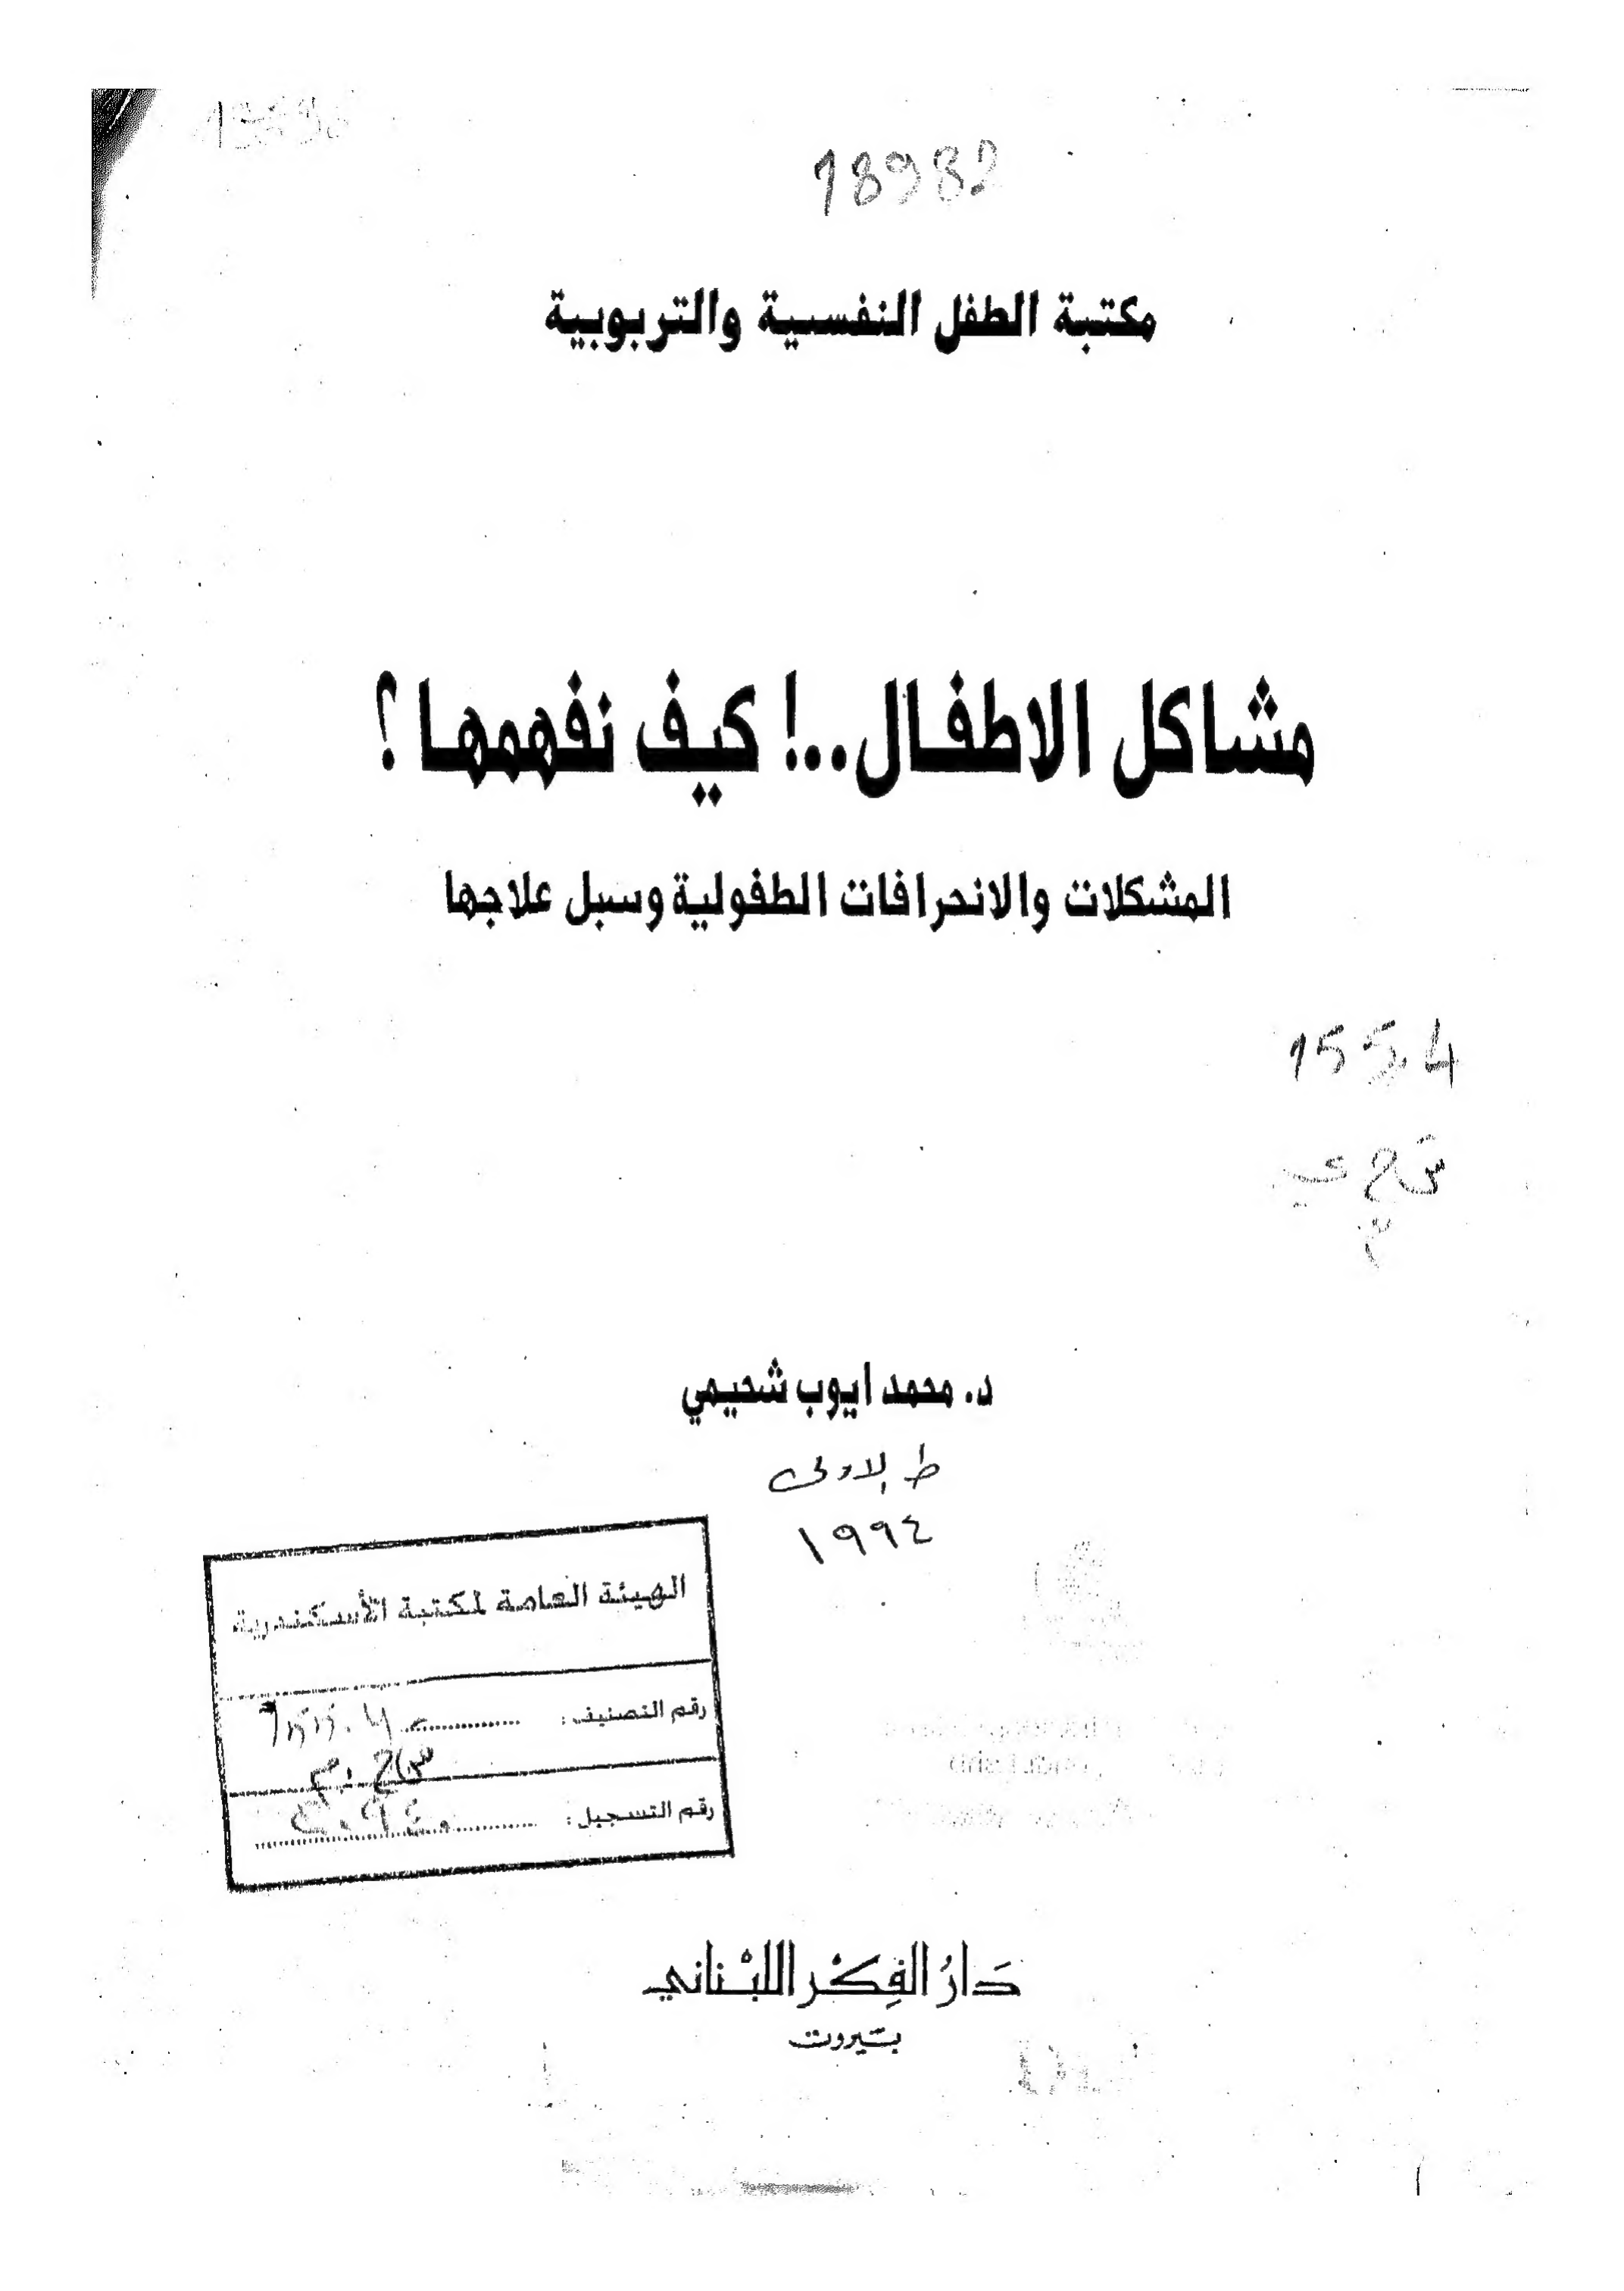 18982
مكتبة الطفل النفسية والتربوية
مشاكل الاطفال..! كيف نفهمها ؟
المشكلات والانحرافات الطفولية وسبل علاجها
155.4
د. محمد ايوب شحيمي
ط الاولى
١٩٩٤
الهيئة العامة لمكتبة الأسكندرية
رقم التصنيف:
رقم التسجيل:
دَارُ الفِكْر اللبْناني
بَيروت